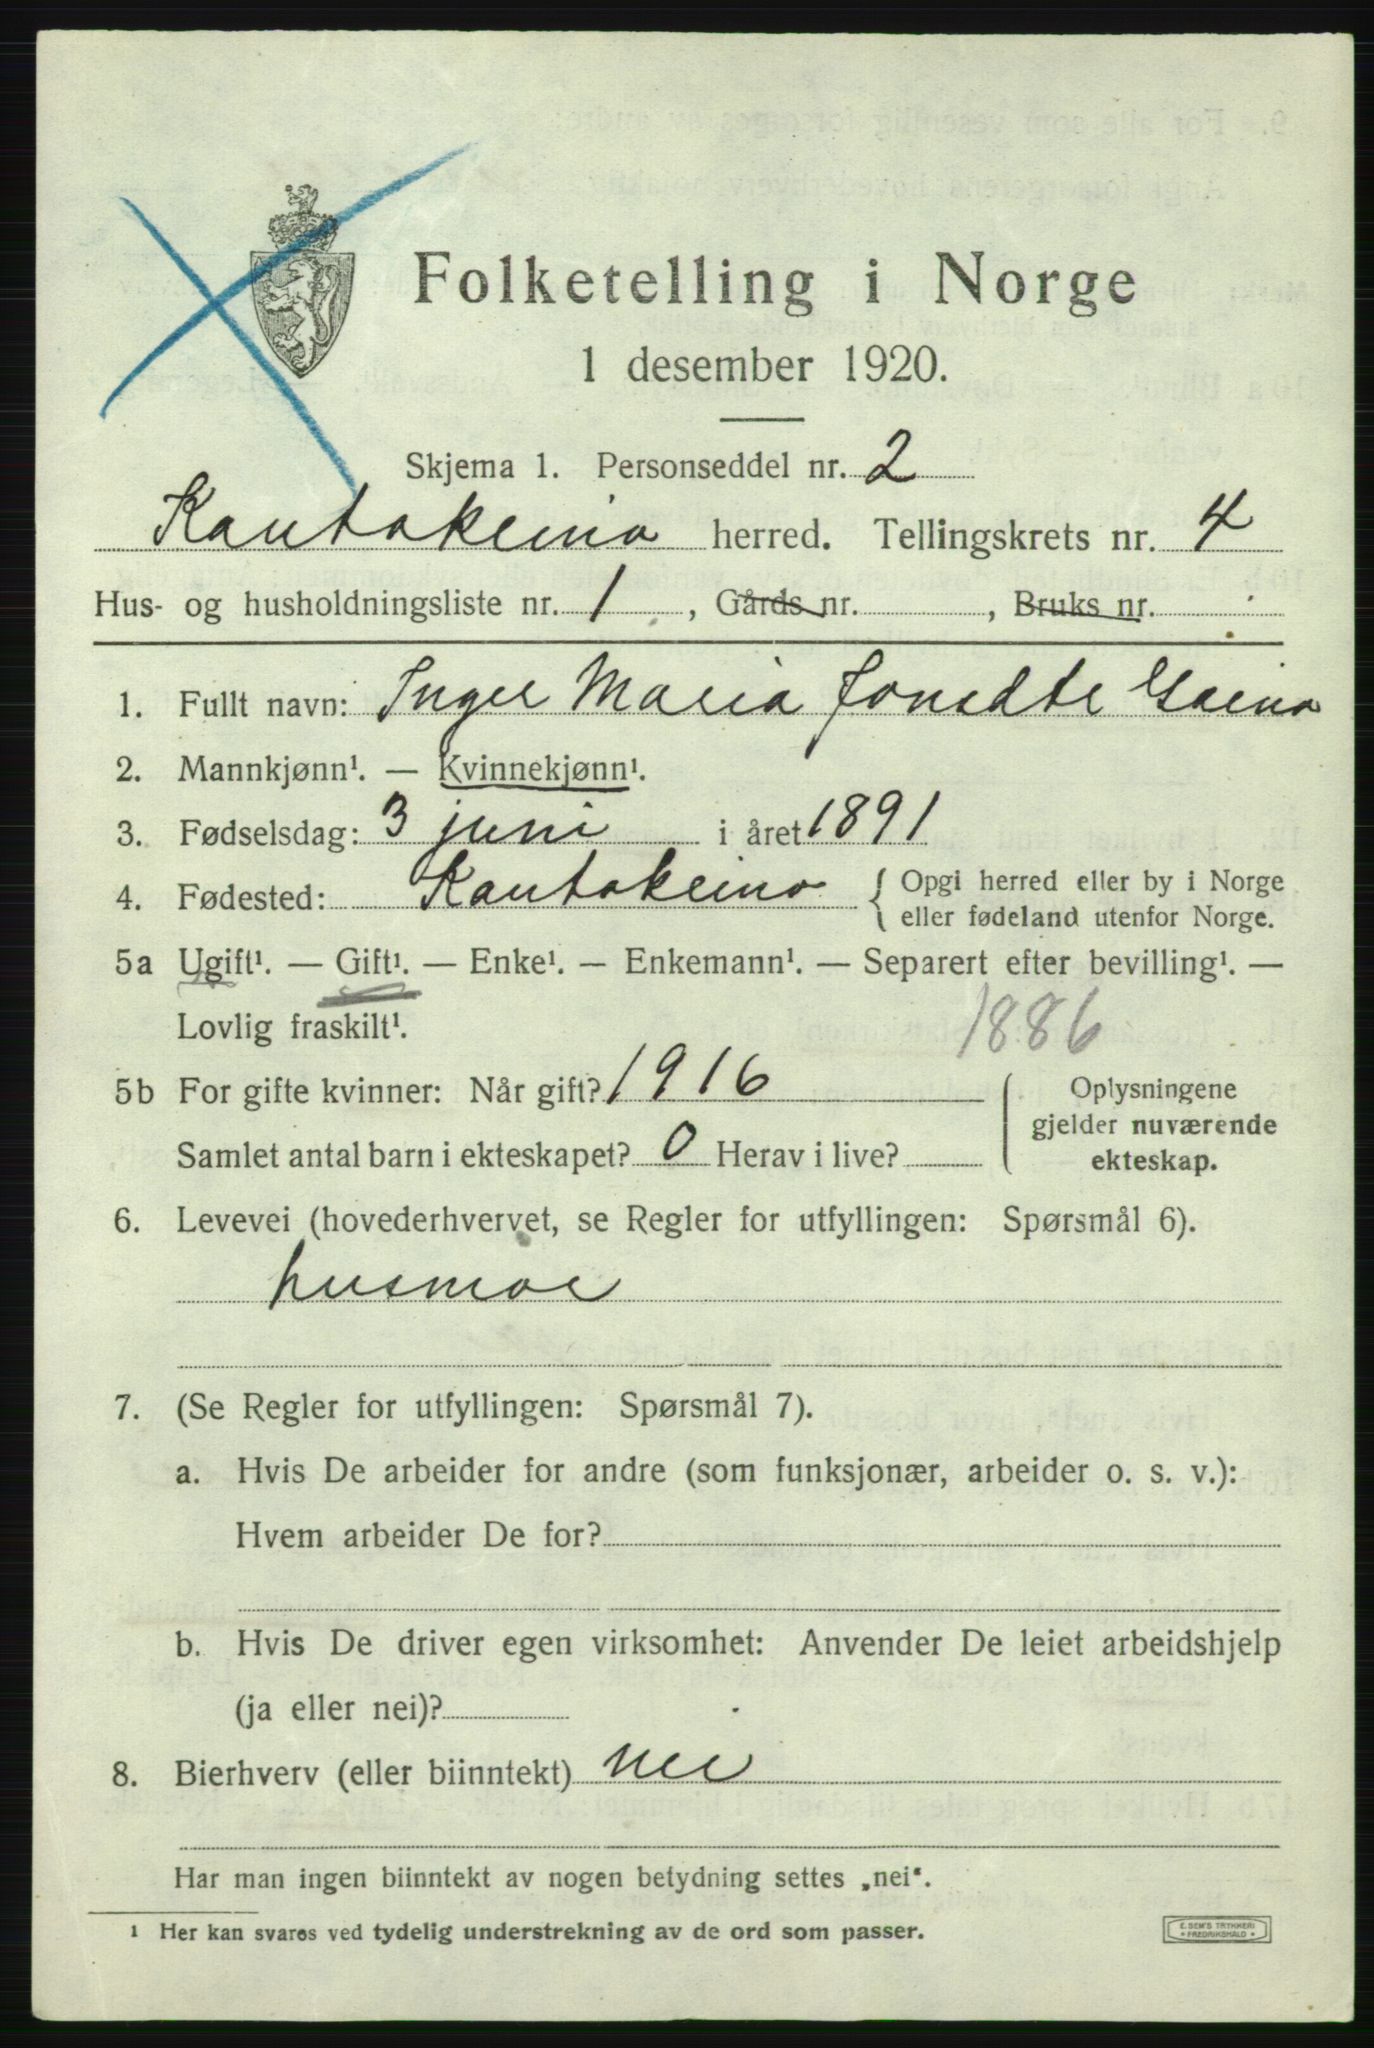 Folketelling i Norge
1 desember 1920.
Skjema 1. Personseddel nr. 2
Kautokeino herred. Tellingskrets nr. 4
Hus- og husholdningsliste nr. 1, Gårds nr. , Bruks nr.
1. Fullt navn: Inger Maria Jonsdtr Gaino
2. Mannkjønn¹. — Kvinnekjønn¹.
3. Fødselsdag: 3 juni i året 1891
4. Fødested: Kautokeino { Opgi herred eller by i Norge
eller fødeland utenfor Norge.
5a Ugift¹. — Gift¹. — Enke¹. — Enkemann¹. — Separert efter bevilling¹. —
Lovlig fraskilt¹. 1886
5b For gifte kvinner: Når gift? 1916
Samlet antal barn i ekteskapet? 0 Herav i live?
Oplysningene
gjelder nuværende
ekteskap.
6. Levevei (hovederhvervet, se Regler for utfyllingen: Spørsmål 6).
husmor
7. (Se Regler for utfyllingen: Spørsmål 7).
a. Hvis De arbeider for andre (som funksjonær, arbeider o. s. v.):
Hvem arbeider De for?
b. Hvis De driver egen virksomhet: Anvender De leiet arbeidshjelp
(ja eller nei)?
8. Bierhverv (eller biinntekt) nei
Har man ingen biinntekt av nogen betydning settes „nei“.
¹ Her kan svares ved tydelig understrekning av de ord som passer.
E. SEM'S TRYKKERI
FREDRIKSHALD